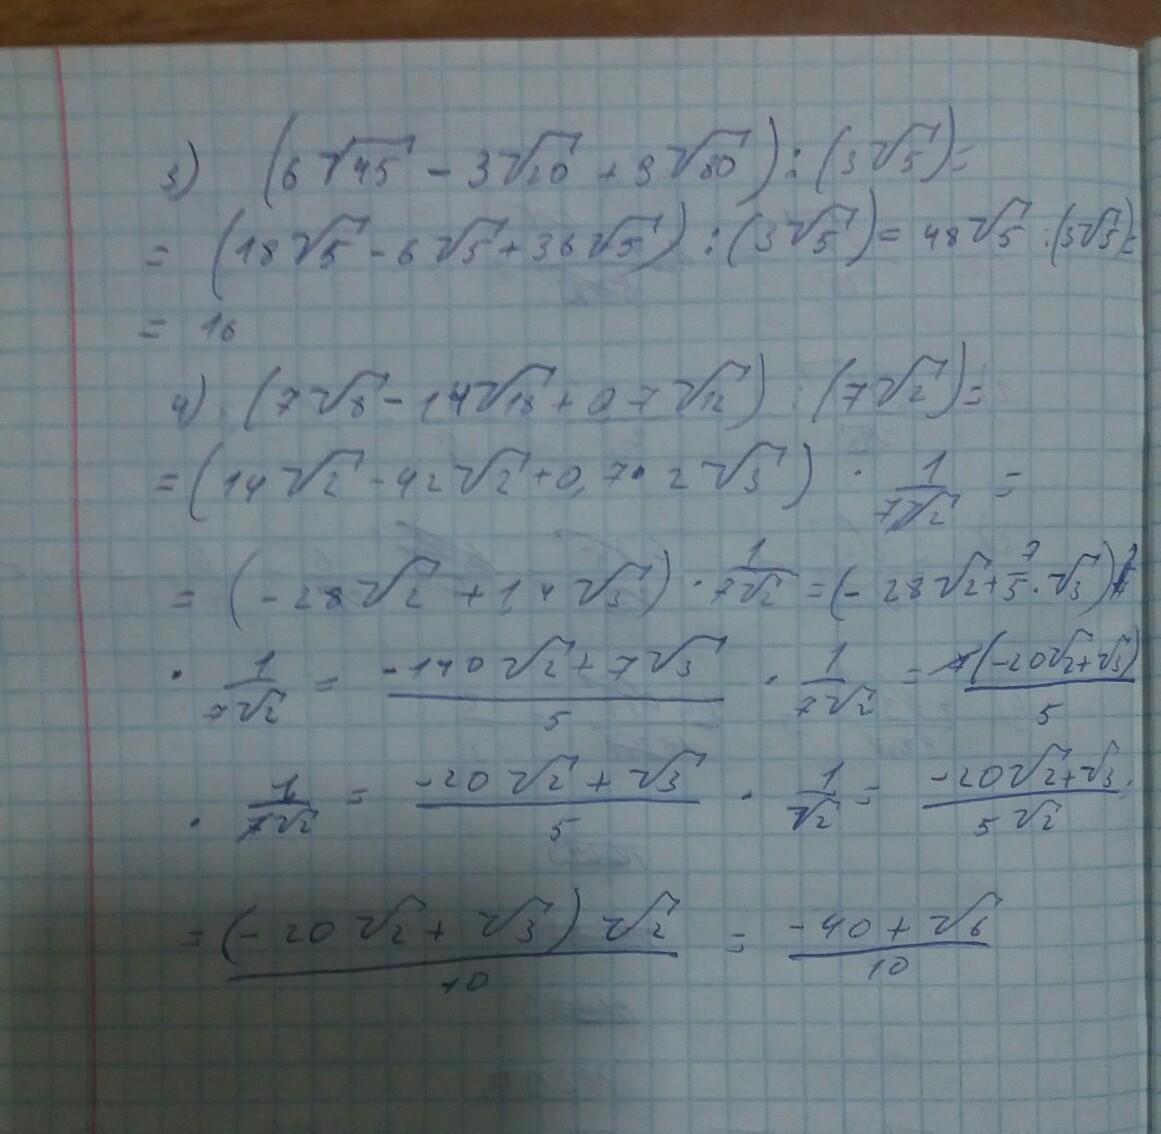 3) (6√45 - 3√20 + 9√80) : (3√5) =
= (18√5 - 6√5 + 36√5) : (3√5) = 48√5 : (3√5) =
= 16
4) (7√8 - 14√18 + 0,7√12) : (7√2) =
= (14√2 - 42√2 + 0,7·2√3) · 1/(7√2) =
= (-28√2 + 1,4√3) · 1/(7√2) = (-28√2 + 7/5·√3)
· 1/(7√2) = (-140√2 + 7√3)/5 · 1/(7√2) = 7(-20√2 + √3)/5
· 1/(7√2) = (-20√2 + √3)/5 · 1/√2 = (-20√2 + √3)/(5√2) =
= (-20√2 + √3)√2/10 = (-40 + √6)/10